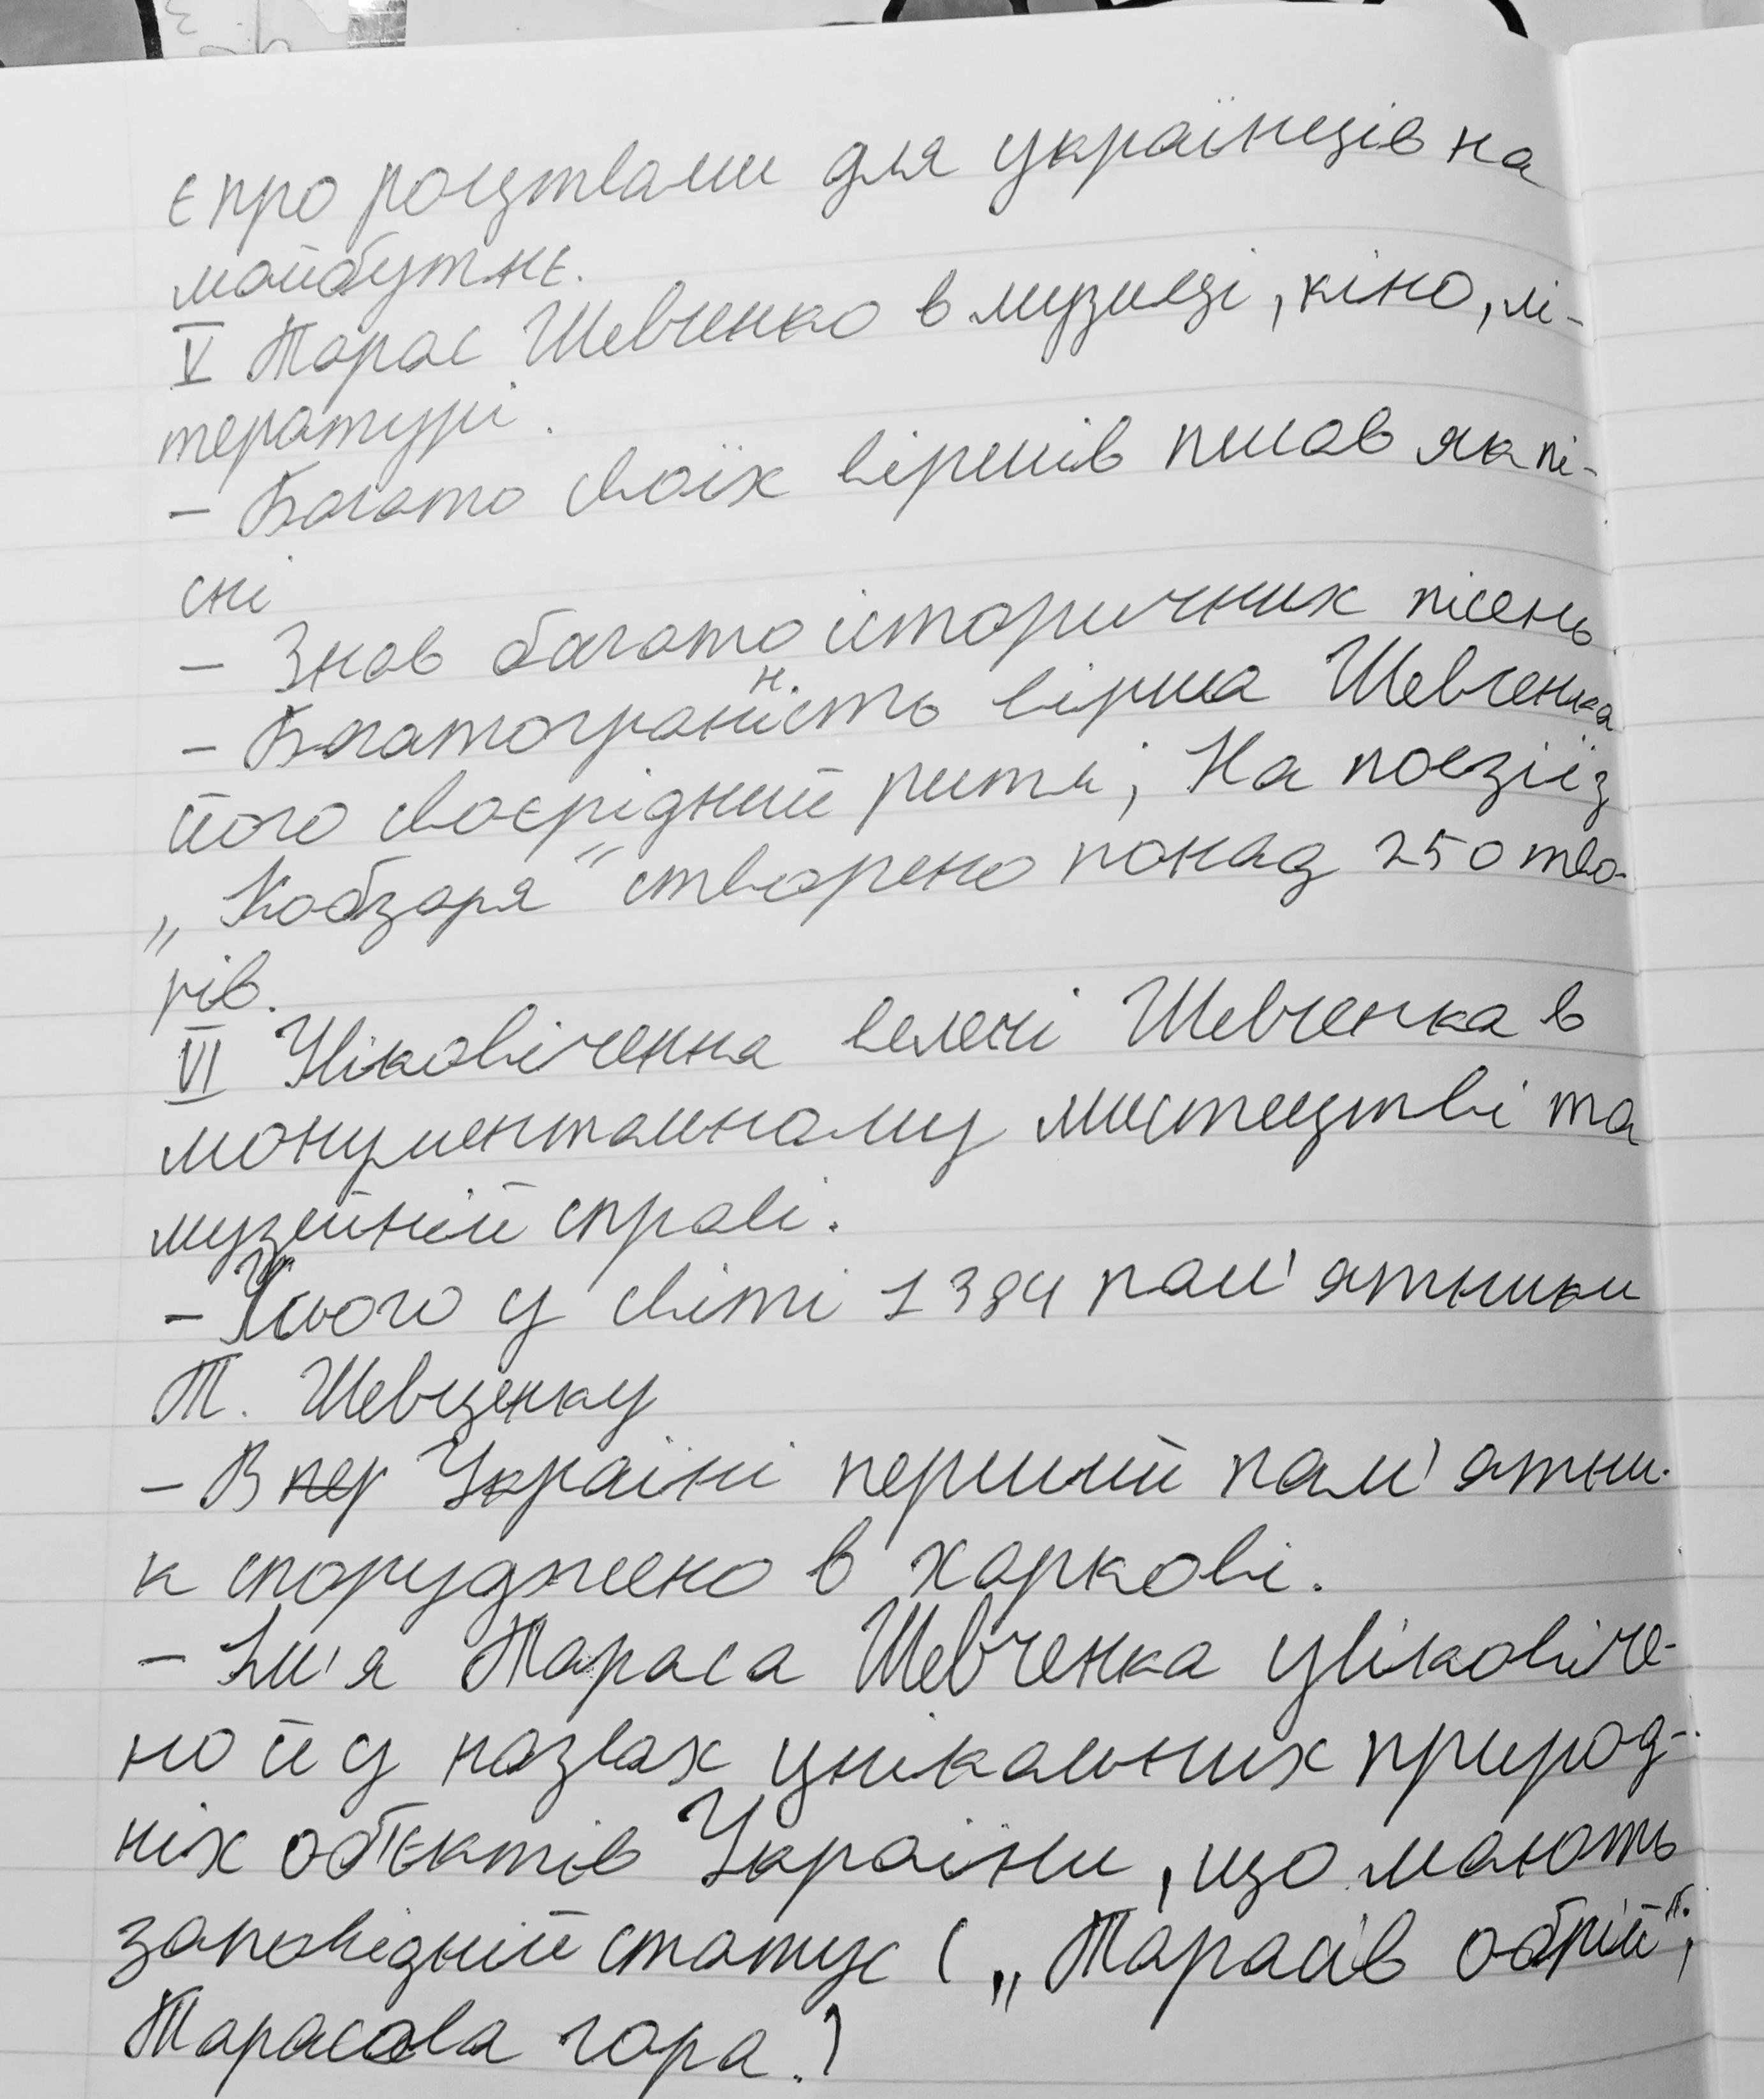 є пророцтвами для українців на
майбутнє.
V Тарас Шевченко в музиці, кіно, лі-
тературі.
- Багато своїх віршів писав як пі-
сні
- Знав багато історичних пісень.
- Багатогранність вірша Шевченка
його своєрідний ритм; На поезії з
„Кобзаря" створено понад 250 тво-
рів.
VI Увіковічення велечі Шевченка в
монументальному мистецтві та
музейній справі.
- Усього у світі 1384 пам'ятники
Т. Шевценку
- В пер Україні перший пам'ятни-
к споруджено в харкові.
- Ім'я Тараса Шевченка увіковіче-
но й у назвах унікальних природ-
ніх об'єктів України, що мають
заповідний статус („Тарасів обрій",
Тарасова гора.)